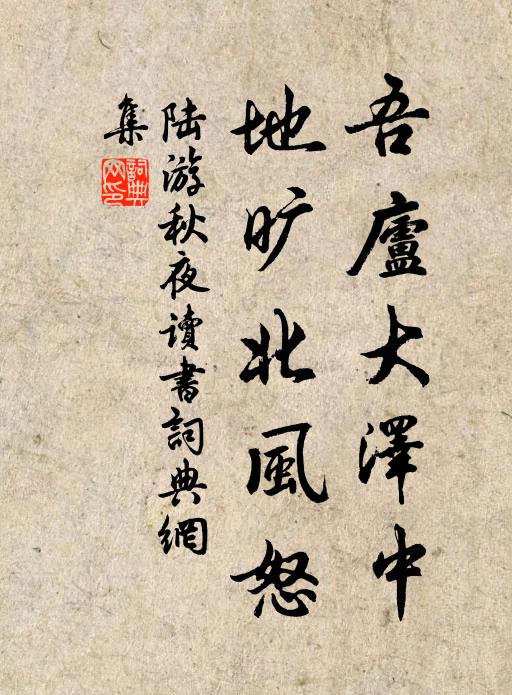 吾廬大澤中
地旷北風怒
陆游秋夜讀書詞典網
集
詞典
网印